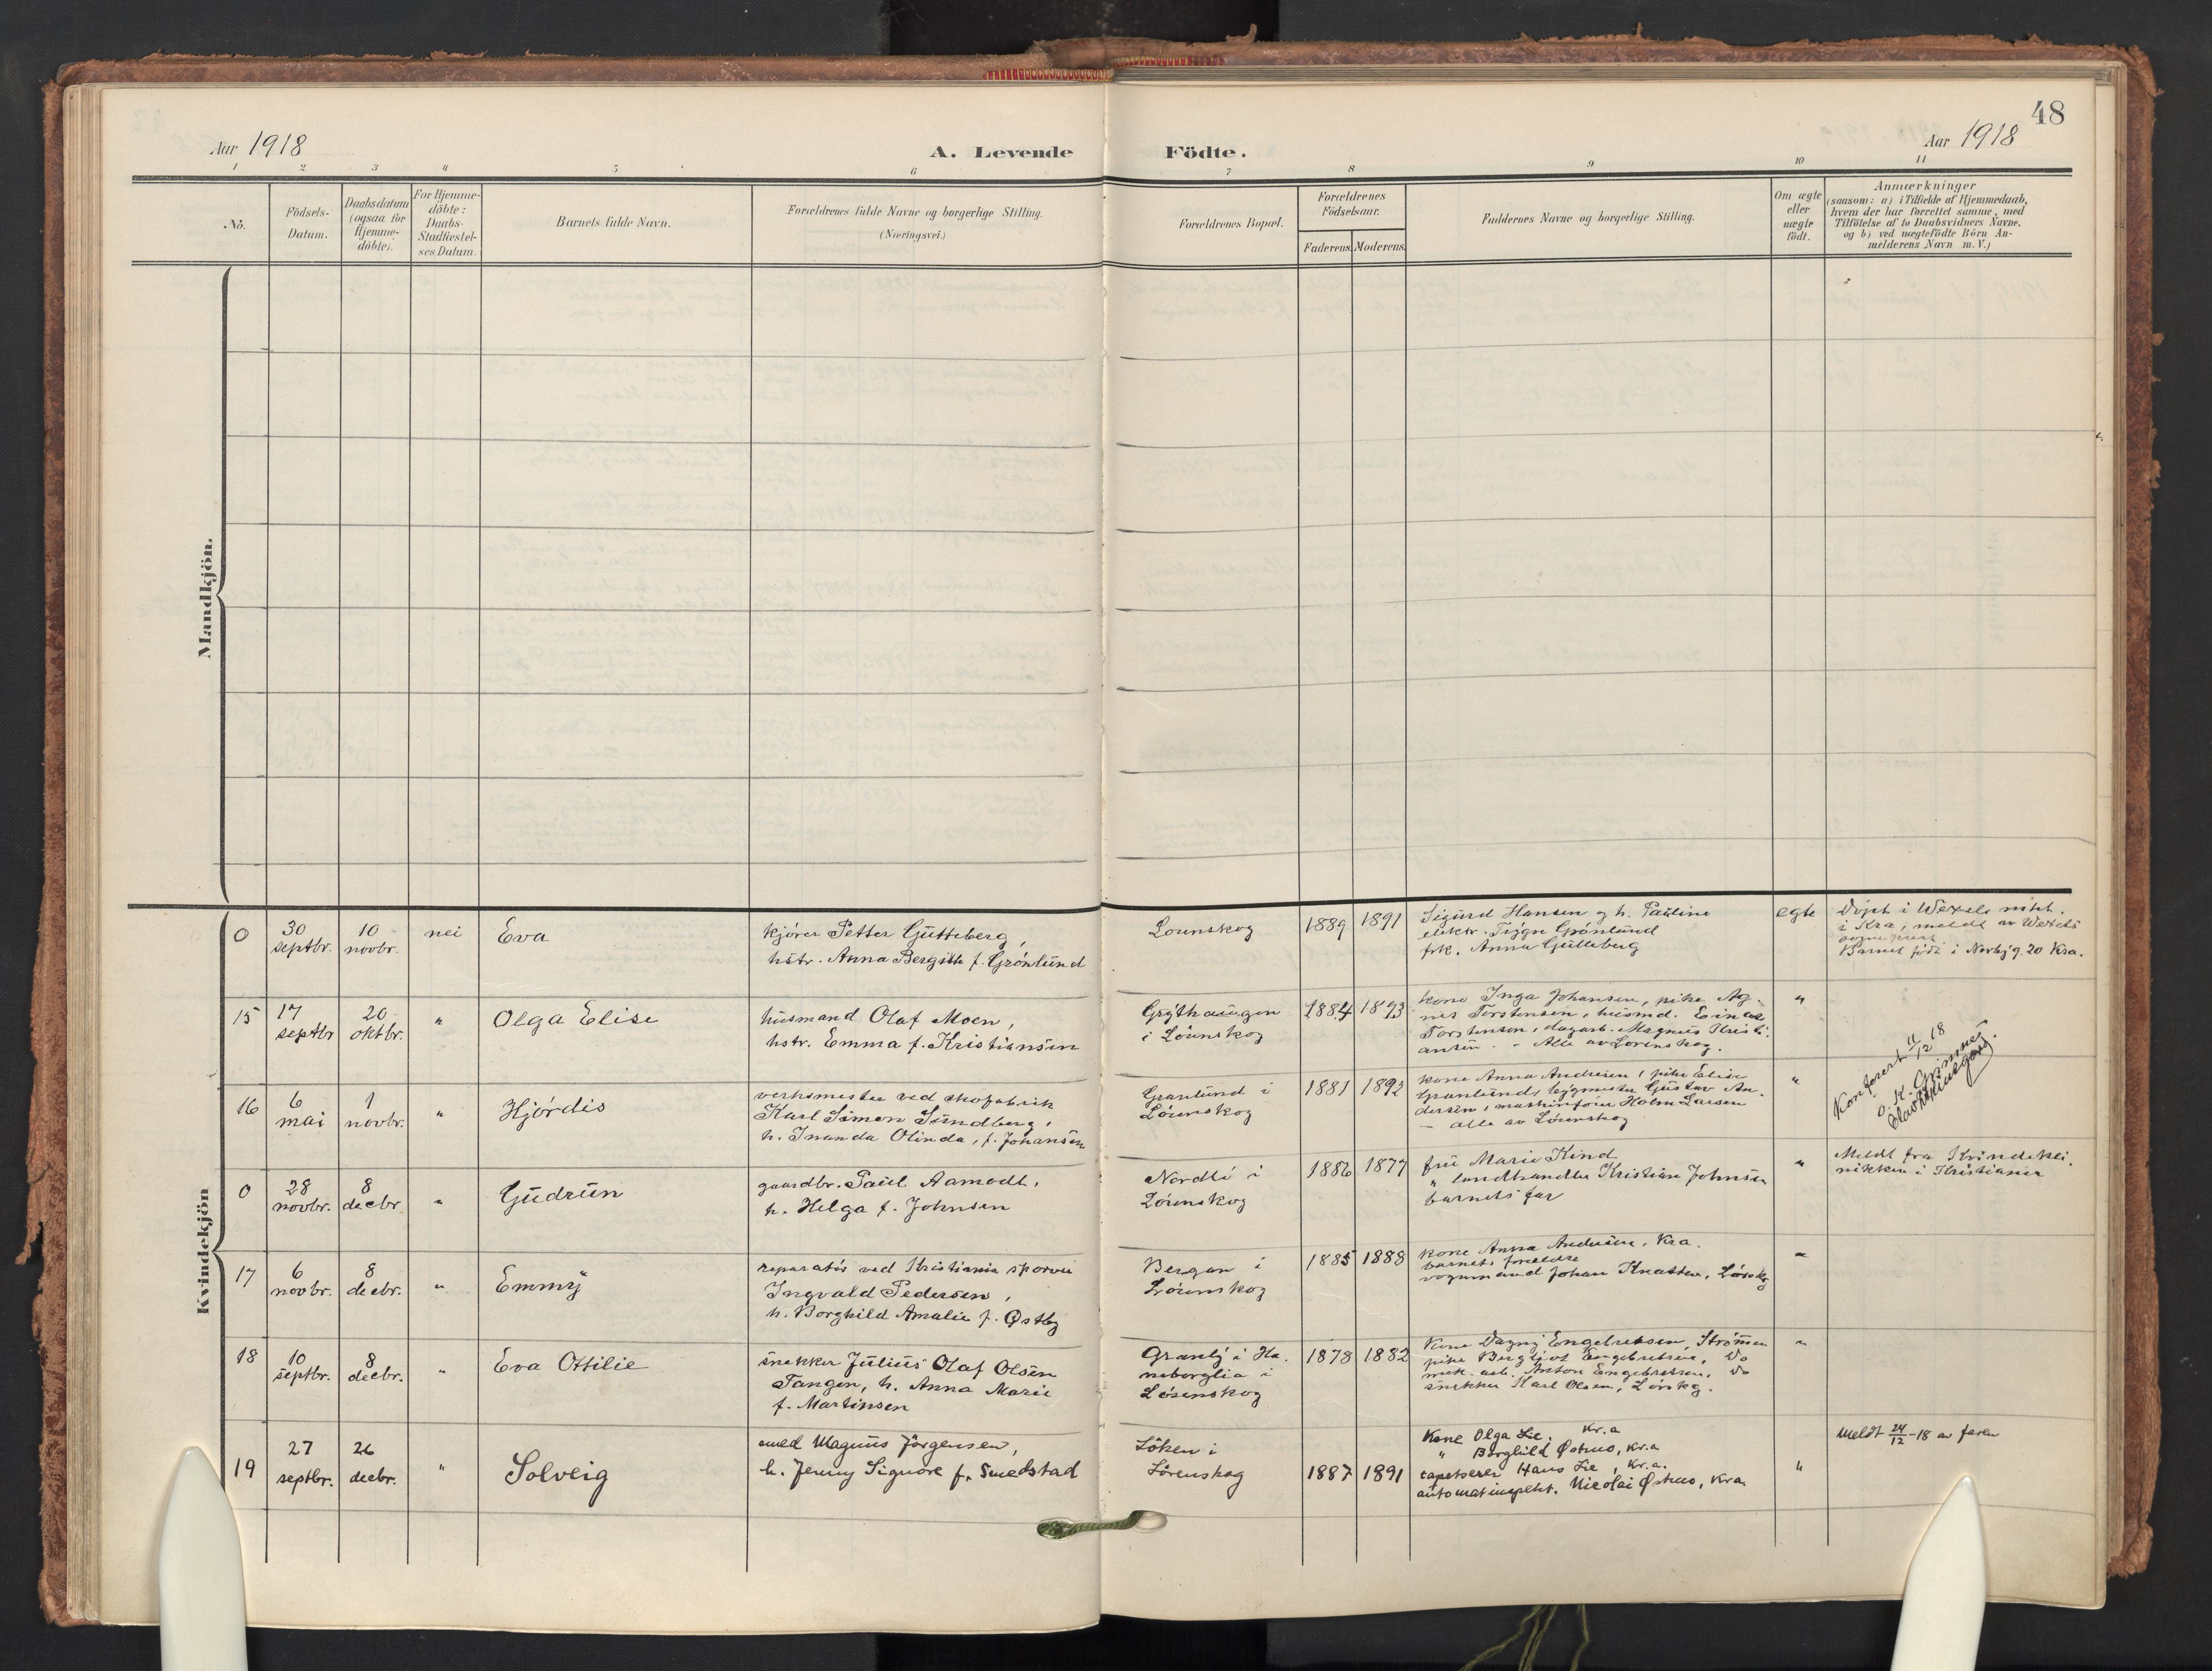 48
Aar 1918
A. Levende Födte.
Aar 1918
1 2 3 4 5 6 7 8 9 10 11
No.
Födsels-
Datum.
Daabsdatum
(ogsaa for
Hjemme-
döbte).
For Hjemme-
döbte:
Daabs-
Stadfæstel-
ses Datum.
Barnets fulde Navn.
Forældrenes fulde Navne og borgerlige Stilling.
(Næringsvei.)
Forældrenes Bopæl.
Forældrenes
Födselsaar.
Faderens. Moderens.
Faddernes Navne og borgerlige Stilling.
Om ægte
eller
uægte
født.
Anmærkninger
(saasom: a) i Tilfælde af Hjemmedaab,
hvem der har forrettet samme, med
Tilföielse af to Daabsvidners Navne.
og b) ved uægtefödte Börn An-
melderens Navn m. V.)
Mandkjön.
Kvindekjön
0
30
septbr.
10
novbr.
nei
Eva
kjører Petter Gutteberg,
hstr. Anna Bergitte f. Grönlund
Lørenskog
1889 1891
Sigurd Hansen og h. Pauline
elektr. Grønlund
frk. Anna Gutteberg
egte
Døpt i Wexels
i Kra, meldt av Wexels
sogneprest.
Barnet født i Norbyg. 20 Kra.
15
17
septbr
20
oktbr.
"
Olga Elise
husmand Olaf Moen,
hstr. Emma f. Kristiansen
Grythaugen
i Lørenskog
1884 1893
kone Inga Johansen, pike Ag-
nes Torstensen, husmd. Einar
Torstensen, dagarb. Magnus Kristi-
ansen. - Alle av Lørenskog.
"
16
6
mai
1
novbr.
"
Hjördis
verksmester ved skofabrik
Karl Simon Sundberg,
h. Inanda Olinda, f. Johansen
Granlund i
Lørenskog
1881 1892
kone Anna Andresen, pike Elise
Granlund, bygmester Gustav An-
dersen, Holm Larsen
- alle av Lørenskog
"
Konferert 11/12 18
O. K. Grimnes
0
28
novbr.
8
decbr
"
Gudrun
gaardbr. Paul Aamodt,
h. Helga f. Johnsen
Nordli i
Lørenskog
1886 1877
fru Marie Kind
" landhandler Kristian Johnsen
barnets far
"
Meldt fra Kvindekli-
nikken i Kristiania
17
6
novbr.
8
decbr.
"
Emmy
reparatör ved Kristiania sporvei
Ingvald Pedersen,
h. Borghild Amalie f. Østby
Bergan i
Lørenskog
1885 1888
kone Anna Andersen, Kra.
barnets forældre
vognmand Johan Knatten, Lørskg
"
18
10
septbr.
8
decbr.
"
Eva Ottilie
snekker Julius Olaf Olsen
Tangen, h. Anna Marie
f. Martinsen
Granly i Ha-
neborglia i
Lørenskog
1878 1882
Kone Dagny Engebretsen, Strømmen
pike Bergliot Engebretsen, Do
mek. arb. Anton Engebretsen, Do
snekker Karl Olsen, Lørskg.
"
19
27
septbr.
26
decbr.
"
Solveig
smed Magnus Jörgensen,
h. Jenny Signore f. Smedstad
Löken i
Lörenskog
1887 1891
Kone Olga Lie, Kr.a
" Borghild Østmo, Kr.a
tapetserer Hans Lie, Kr.a.
automatinspekt. Nicolai Østmo, Kra.
"
Meldt 24/12-18 av faren